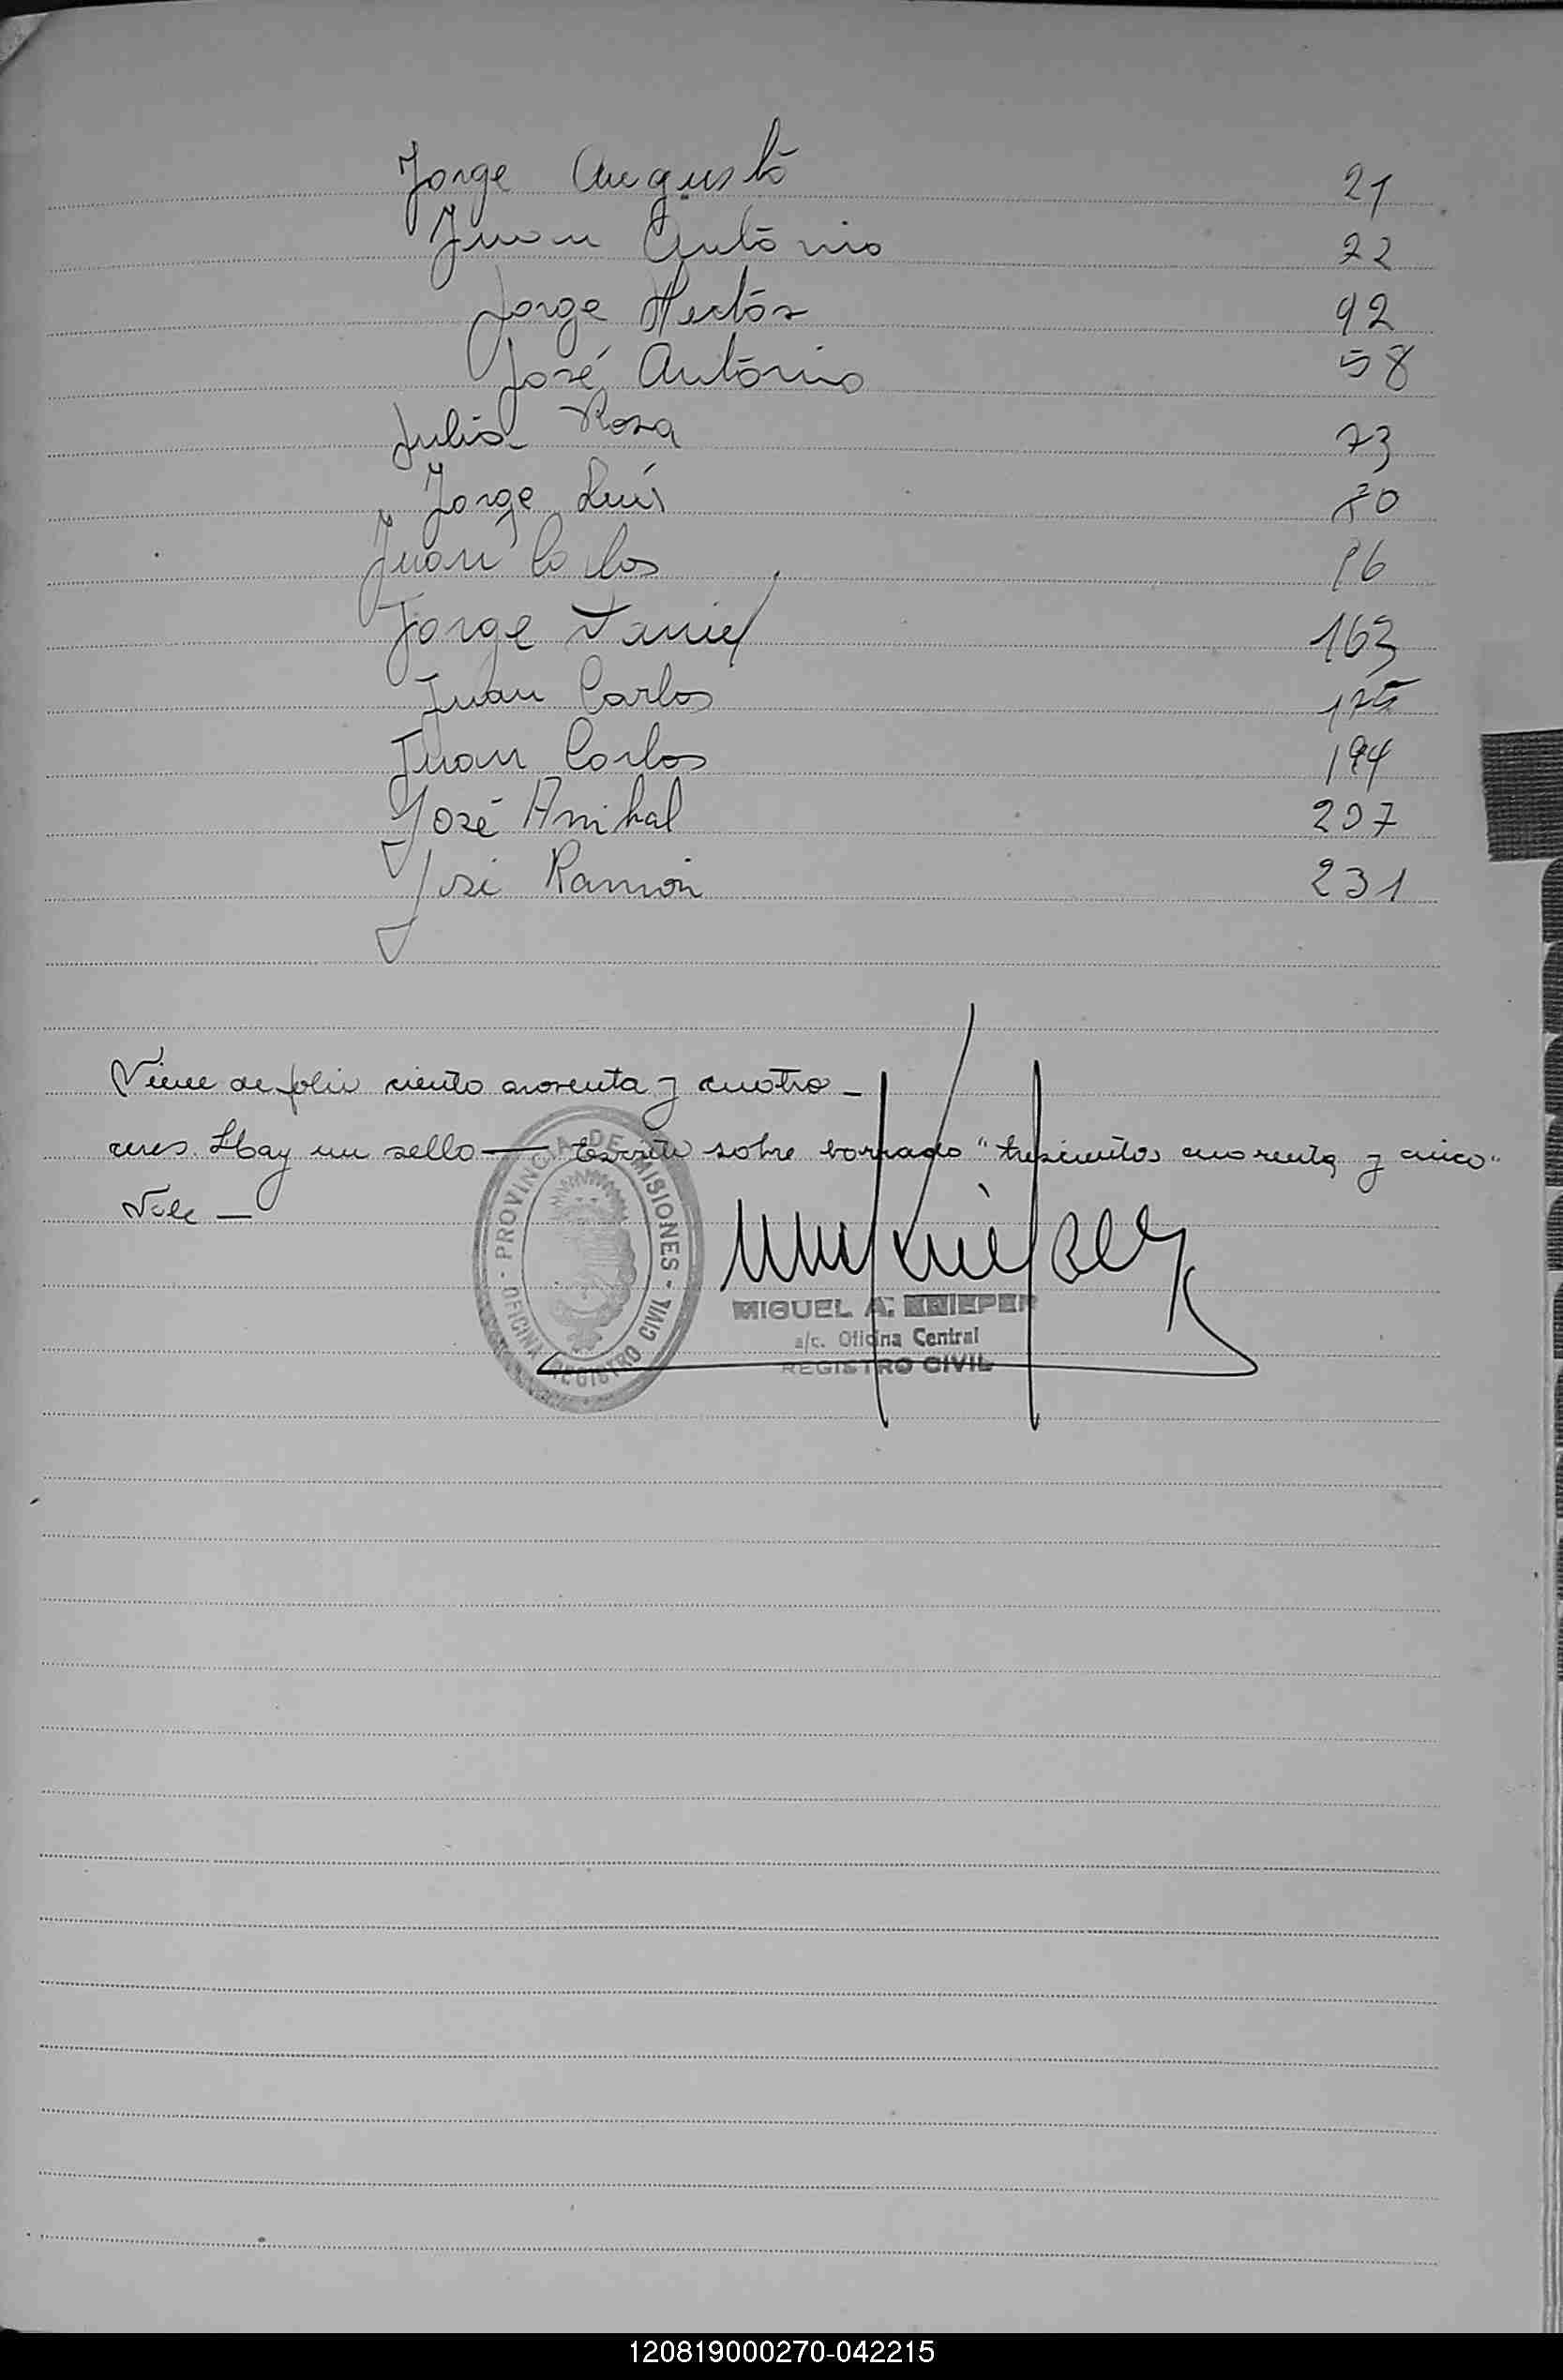 Jorge Augusto 21
Juan Antonio 22
Jorge Hector 92
José Antonio 58
Julia Rosa 73
Jorge Luís 80
Juan Carlos 86
Jorge Daniel 163
Juan Carlos 175
Juan Carlos 194
José Anibal 207
José Ramón 231
Viene de folio ciento cuarenta y cuatro
ceres. Hay un sello — Escrito sobre borrado "trescientos cuarenta y cinco"
Vale —
PROVINCIA DE MISIONES
OFICINA REGISTRO CIVIL
MIGUEL A. KNIEPER
a/c. Oficina Central
REGISTRO CIVIL
120819000270-042215